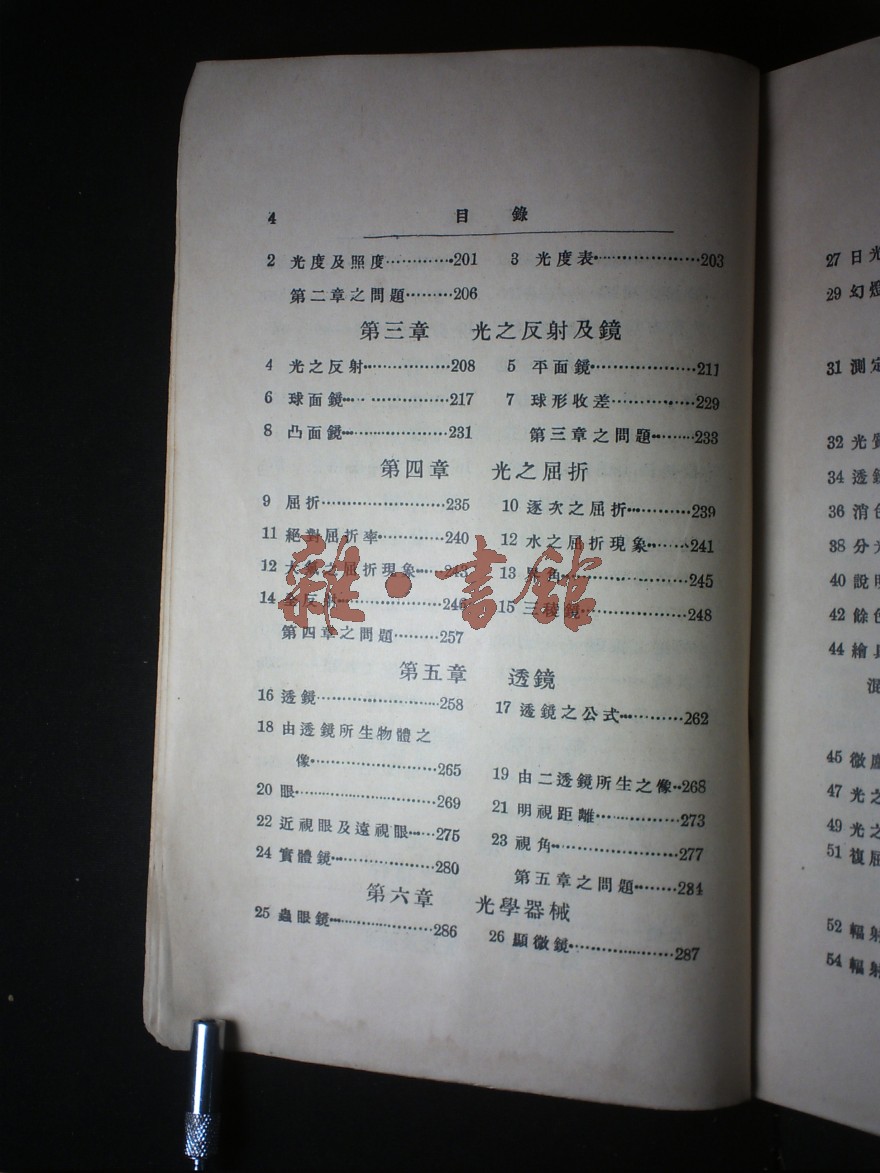 4 目錄
2 光度及照度············201 3 光度表··················203
第二章之問題·········206
第三章 光之反射及鏡
4 光之反射················208 5 平面鏡····················211
6 球面鏡··· · ················217 7 球形收差···············229
8 凸面鏡····················231 第三章之問題·········233
第四章 光之屈折
9 屈折·······················235 10 逐次之屈折············239
11 絕對屈折率············240 12 水之屈折現象·······241
12 大氣之屈折現象·····243 13 界角·····················245
14 全反射··················246 15 三稜鏡··················248
第四章之問題·········257
第五章 透鏡
16 透鏡·····················258 17 透鏡之公式············262
18 由透鏡所生物體之
像·······················265 19 由二透鏡所生之像··268
20 眼·························269 21 明視距離···············273
22 近視眼及遠視眼·····275 23 視角·····················277
24 實體鏡··················280 第五章之問題·········284
第六章 光學器械
25 蟲眼鏡··················286 26 顯微鏡··················287
雜·書館
27 日光
29 幻燈
31 測定
32 光質
34 透鏡
36 消色
38 分光
40 說明
42 餘色
44 繪具
混
45 微塵
47 光之
49 光之
51 複屈
52 輻射
54 輻射